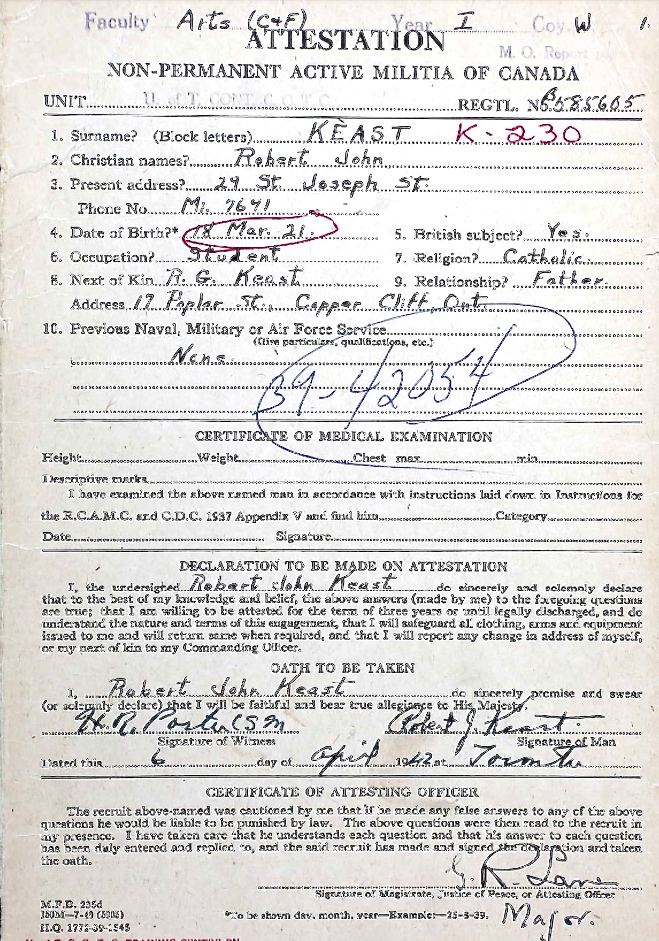 Faculty Arts (C&F) Year I Coy. W 1.
ATTESTATION
M. O. Report
NON-PERMANENT ACTIVE MILITIA OF CANADA
UNIT U. of T. CONT., C.O.T.C. REGTL. No B585605
1. Surname? (Block letters) KEAST K-230
2. Christian names? Robert John
3. Present address? 29 St. Joseph St.
Phone No. Mi. 7691
4. Date of Birth?* 18 Mar. 21. 5. British subject? Yes.
6. Occupation? Student 7. Religion? Catholic.
8. Next of Kin R. G. Keast 9. Relationship? Father.
Address 17 Poplar St., Copper Cliff, Ont.
10. Previous Naval, Military or Air Force Service
(Give particulars, qualifications, etc.)
None.
39-42054
CERTIFICATE OF MEDICAL EXAMINATION
Height Weight Chest max. min.
Descriptive marks
I have examined the above named man in accordance with instructions laid down in Instructions for
the R.C.A.M.C. and C.D.C. 1937 Appendix V and find him Category
Date Signature
DECLARATION TO BE MADE ON ATTESTATION
I, the undersigned Robert John Keast do sincerely and solemnly declare
that to the best of my knowledge and belief, the above answers (made by me) to the foregoing questions
are true; that I am willing to be attested for the term of three years or until legally discharged, and do
understand the nature and terms of this engagement, that I will safeguard all clothing, arms and equipment
issued to me and will return same when required, and that I will report any change is address of myself,
or my next of kin to my Commanding Officer.
OATH TO BE TAKEN
I, Robert John Keast do sincerely promise and swear
(or solemnly declare) that I will be faithful and bear true allegiance to His Majesty.
H. R. Porter CSM Robert J. Keast.
Signature of Witness Signature of Man
Dated this 6 day of April 1942 at Toronto
CERTIFICATE OF ATTESTING OFFICER
The recruit above-named was cautioned by me that if be made any false answers to any of the above
questions he would be liable to be punished by law. The above questions were then read to the recruit in
my presence. I have taken care that he understands each question and that his answer to each question
has been duly entered and replied to, and the said recruit has made and signed the declaration and taken
the oath.
G. R. Lane
Signature of Magistrate, Justice of Peace, or Attesting Officer
M.F.B. 235d
H.Q. 1772-39-1545
*To be shown day, month, year—Example:—25-8-39.
Major.